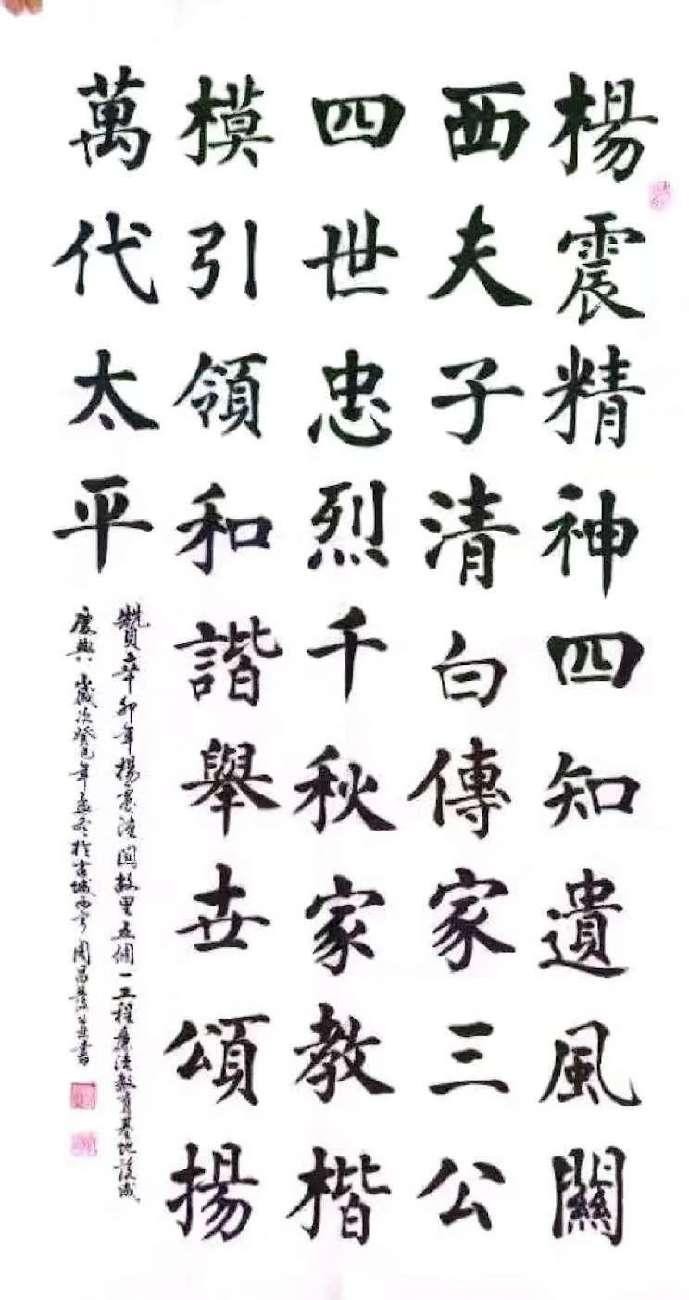 楊震精神四知遺風關
西夫子清白傳家三公
四世忠烈千秋家教楷
模引領和諧舉世頌揚
萬代太平
贊辛卯年楊震清風故里五個一工程廉潔教育基地設成
慶典 歲次癸巳年孟冬於古城西寧周昌書